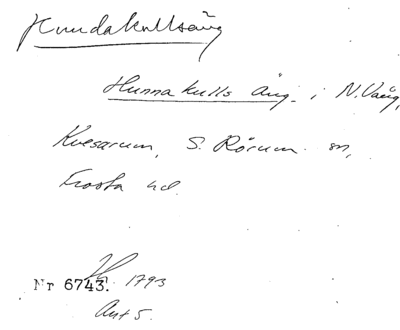 Hundakullsäng
Hunnakulls Äng i N. Vång,
Kvesarum, S. Rörum sn,
Frosta hd.
Nr 6743. 1793
Akt 5.